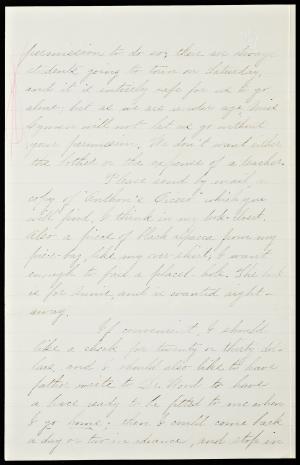 permission to do so; there are always
students going to town on Saturday,
and it is entirely safe for us to go
alone, but as we are under age, Miss
Lyman will not let us go without
your permission. We don't want either
the bother or the expense of a teacher.
Please send by mail a
copy of "Anthon's Cicero" which you
will find, I think in my book-closet.
Also a piece of black alpaca from my
piece-bag, like my over skirt, I want
enough to face a placket hole. The book
is for Annie, and is wanted right-
away.
If convenient, I should
like a check for twenty or thirty dol-
lars, and I should also like to have
father write to Dr. Wood to have
a brace ready to be fitted to me when
I go home; then I could come back
a day or two in advance, and stop in